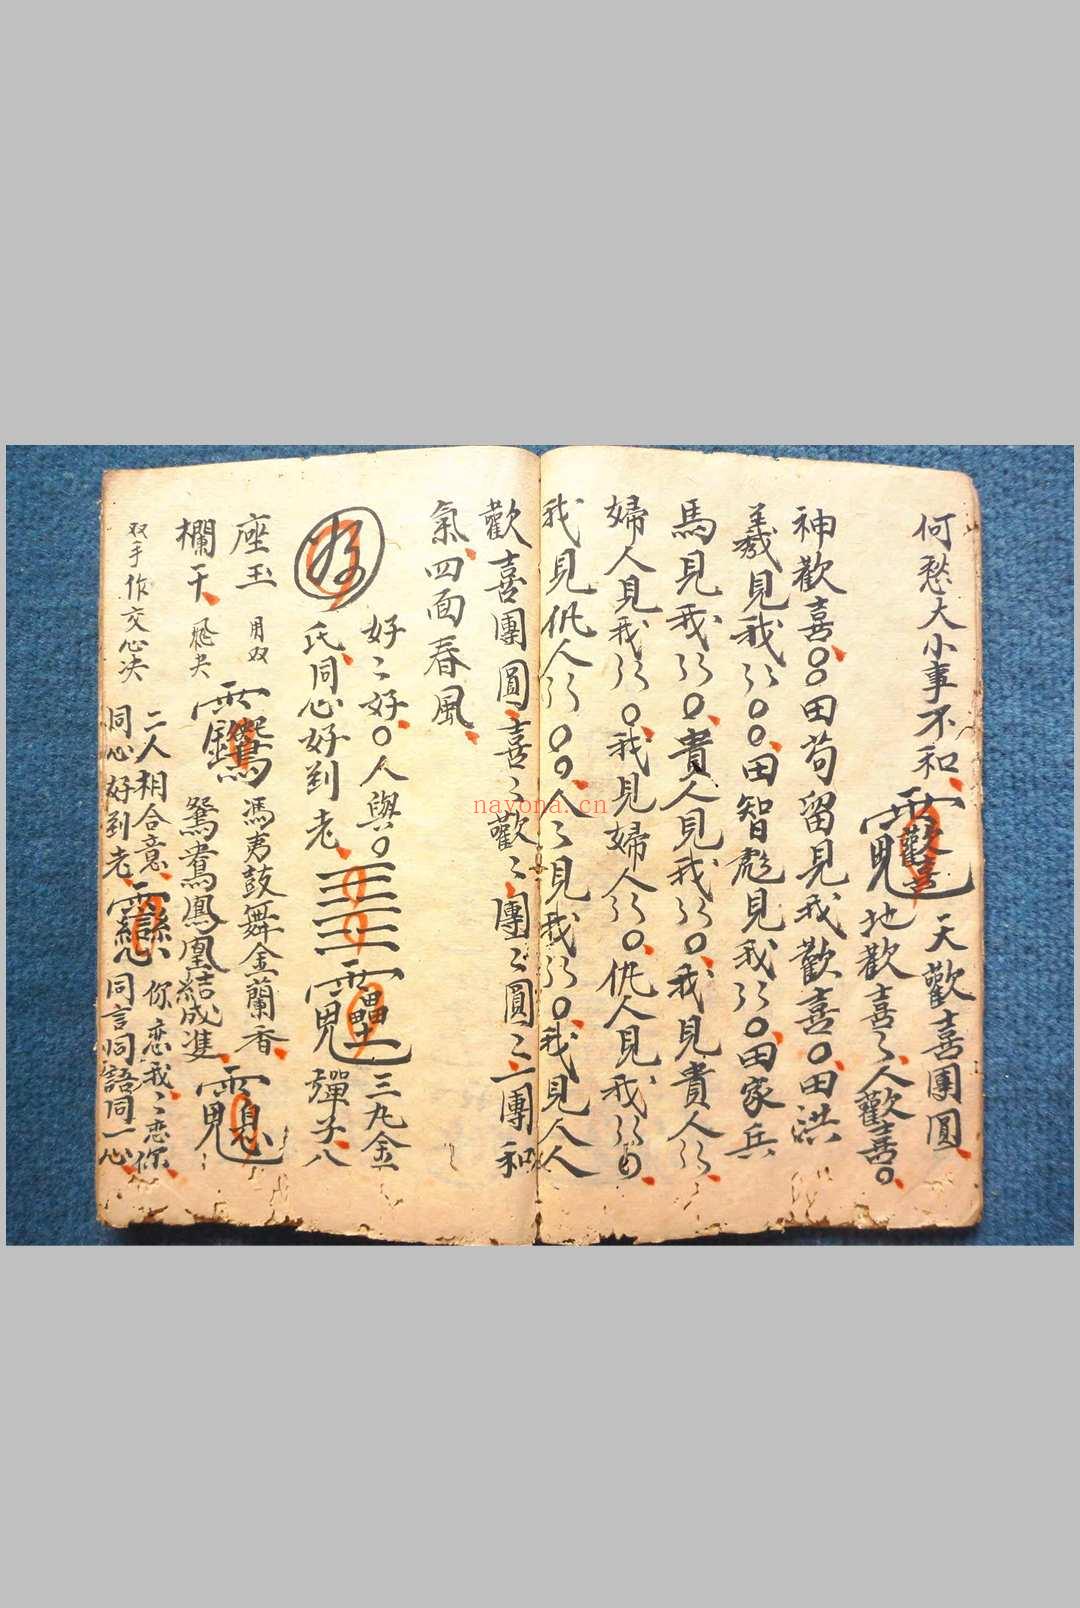 何愁大小事不和
天歡喜團圓
地歡喜〻人歡喜○
神歡喜○○田苟留見我歡喜○田洪
義見我〻〻○○田智彪見我〻〻○田家兵
馬見我〻〻○貴人見我〻〻○我見貴人〻〻
婦人見我〻〻○我見婦人〻〻○仇人見我〻〻○
我見仇人〻〻○○人〻見我〻〻○我見人人
歡喜團圓喜〻歡〻團〻圓〻一團和
氣四面春風
好〻好○人與○
氏同心好到老
三九金
彈子八
座玉
用双
馮夷鼓舞金蘭香
欄干
鴛鴦鳳凰結成雙
二人相合意
你恋我〻恋你
双手作交心决
同心好到老
同言同語同一心
nayona.cn